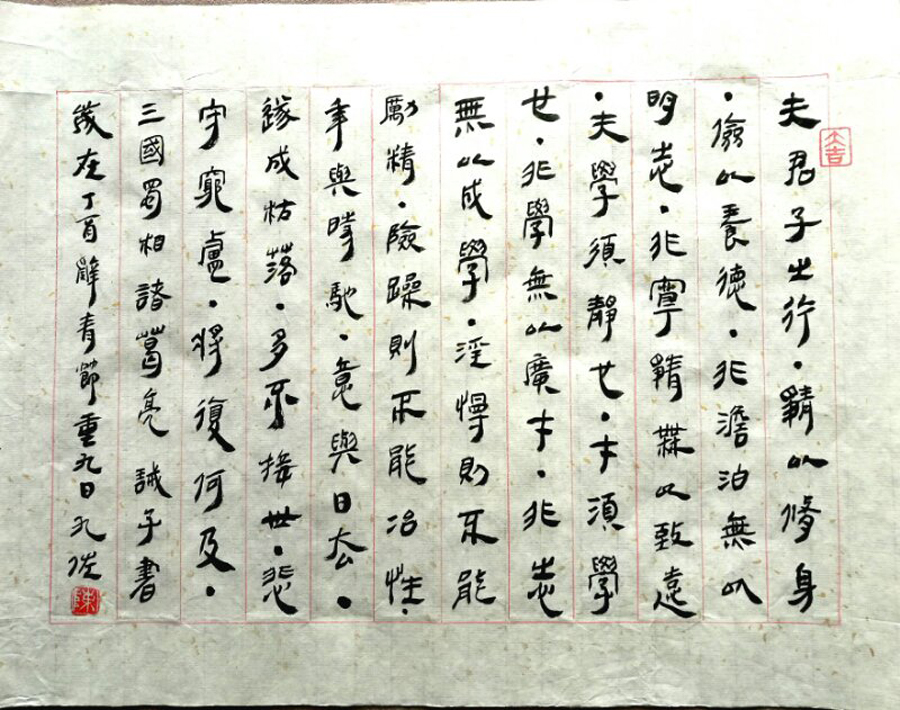 大吉
夫君子之行·靜以脩身
·儉以養德·非澹泊無以
明志·非寧靜無以致遠
·夫學須靜也·才須學
也·非學無以廣才·非志
無以成學·淫慢則不能
勵精·險躁則不能冶性·
年與時馳·意與日去·
遂成枯落·多不接世·悲
守窮盧·將復何及·
三國蜀相諸葛亮誡子書
歲在丁酉辭青節重九日
陳